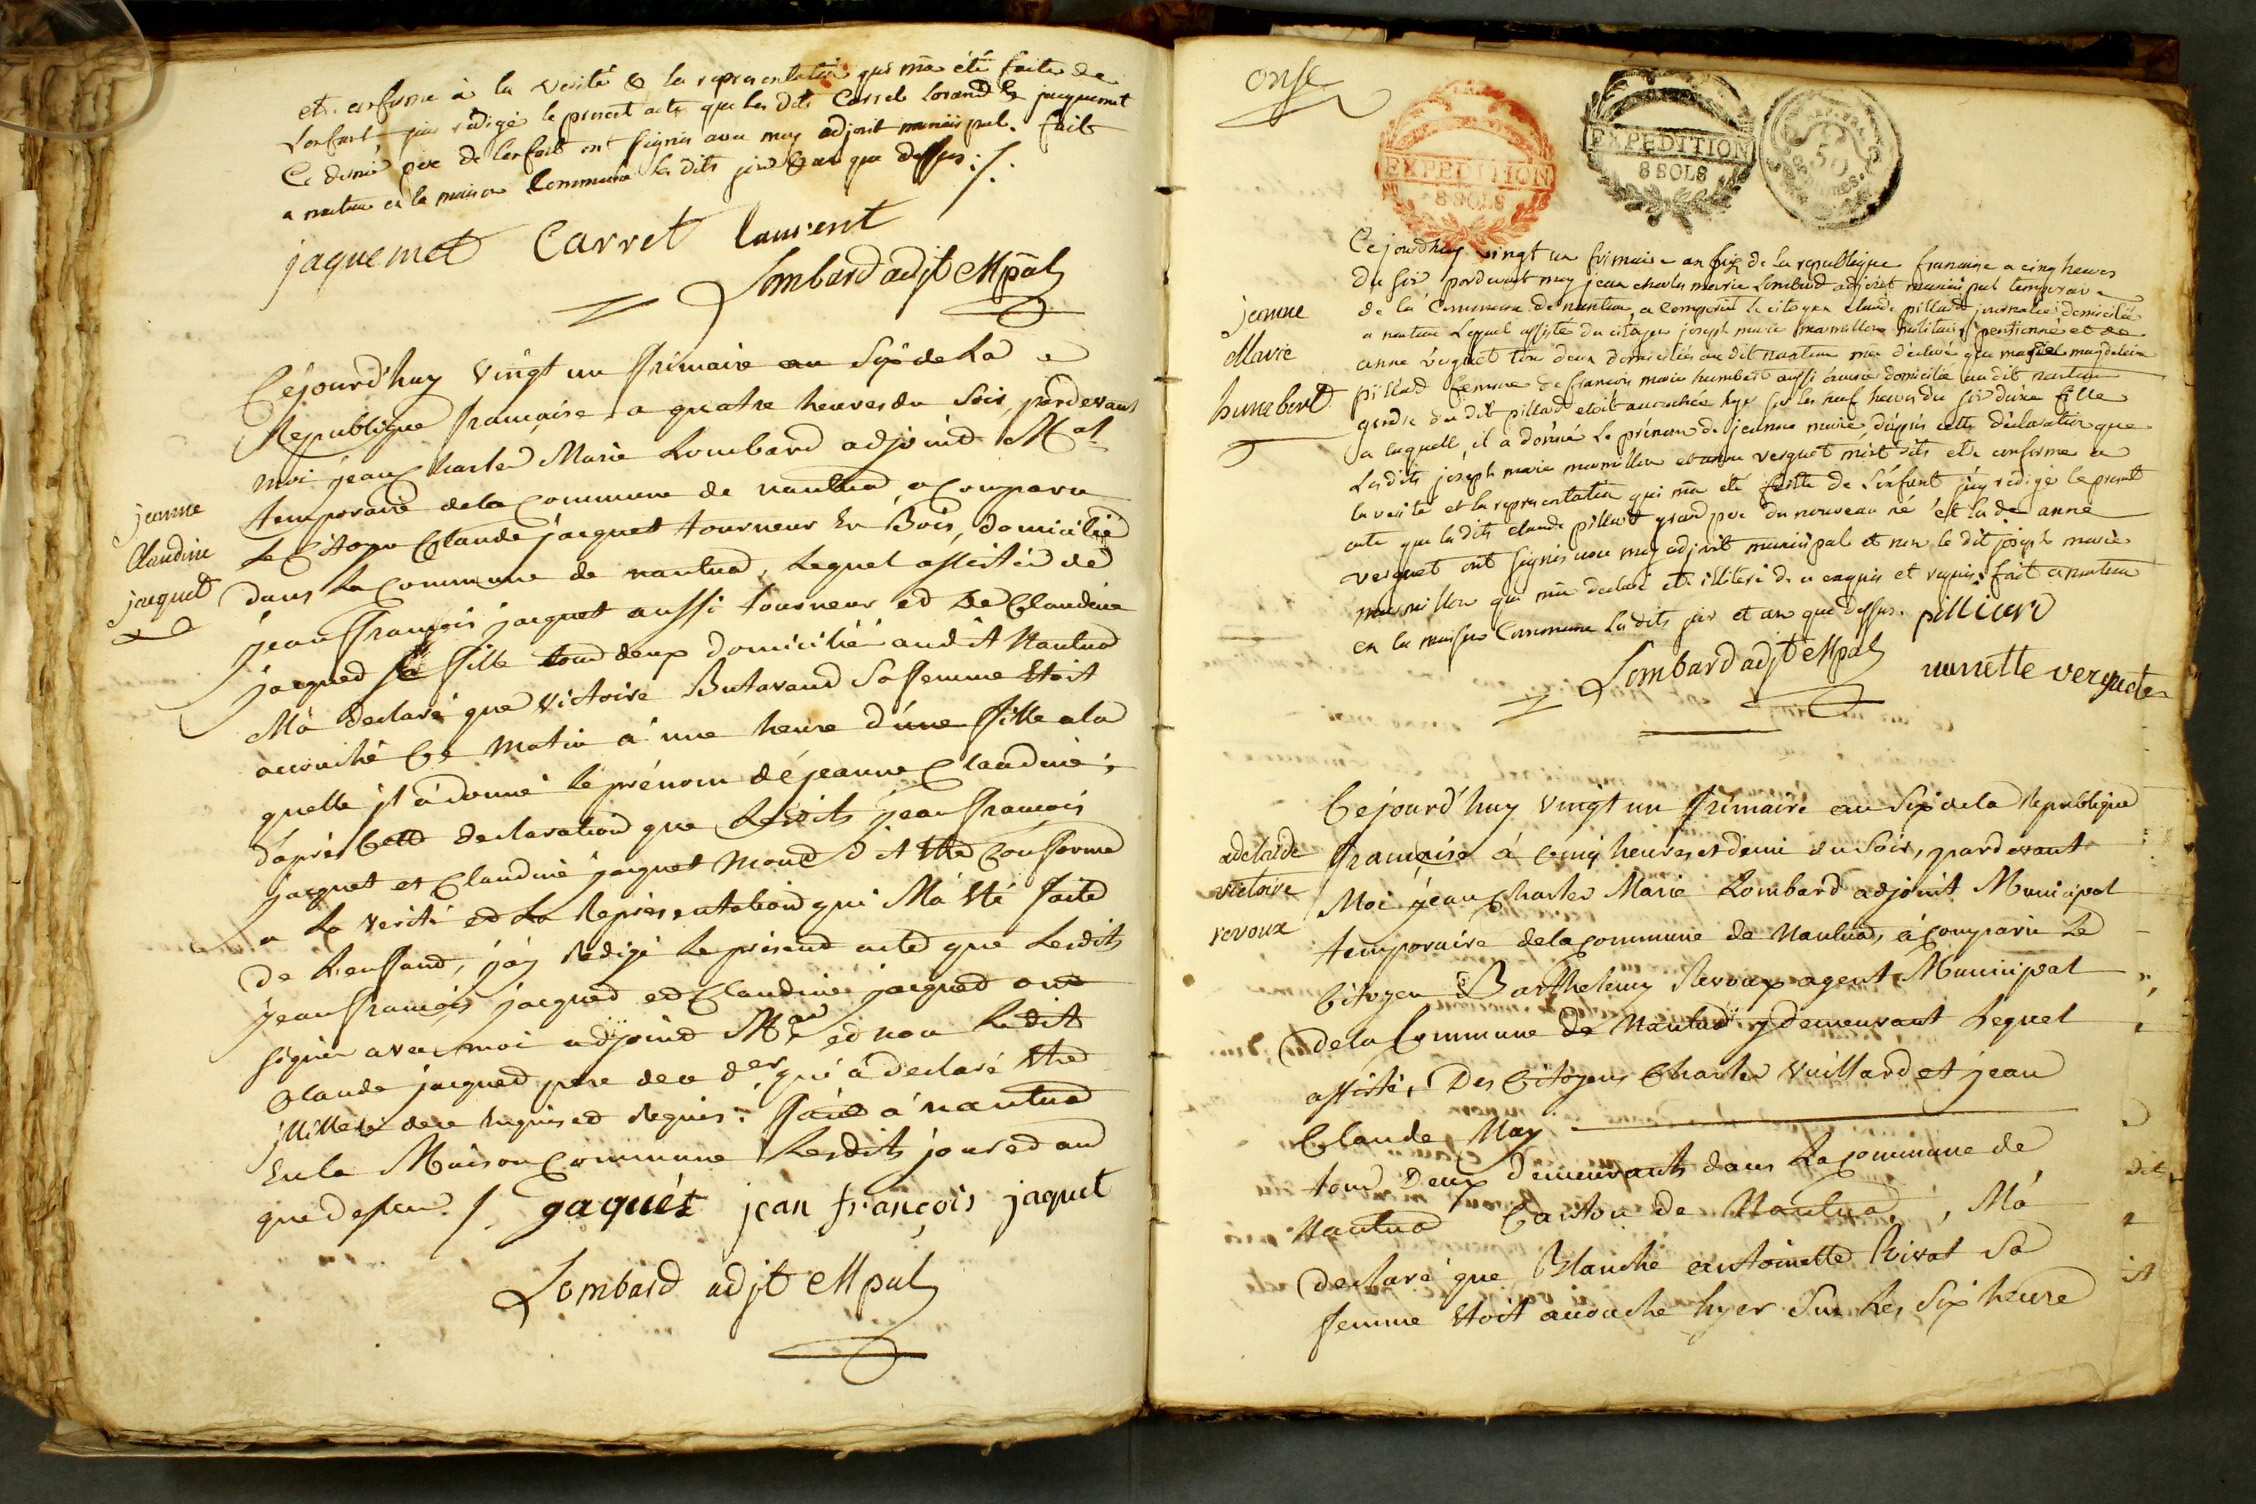 et conforme à la verité & la representation qui m'a été faite de
L'enfant, j'ai rédigé le present acte que les dits Carret lorand & jacquemet
Ce dernier pere de l'enfant ont signés avec moy adjoint municipal. fait
a nantua en la maison Commune les dits jour & an que dessus ./.
jaquemet Carret laurent
Lombard adjt Mpal
jeanne
Claudine
jacquet
Céjourd'huy vingt un frimaire an Six de La
République françaisse a quatre heures du Soir, pardevant
moi jean Charles Marie Lombard adjoind Mal
temporaire de la Commune de nantua, a Comparu
Le Citoyen Claude jacquet tourneur En Bois, Domicilié
dans La Commune de nantua, Lequel assisté de
jean François jacquet aussi tourneur ed De Claudine
jacqued sa fille tous deux domicilié audit Nantua
M'a declaré que victoire Butavand Sa femme Etoit
accouché Ce matin à une heure d'une fille a la
quelle jl à donné le prénom dé jeanne Claudine ;
d'après Cette declaration que Lesdits jean François
jacquet et Claudine jacquet mond dit Etre Conforme
a La verité ed La Représentation qui M'a Eté faite
de L'enfand, j'ay Rédigé Le présend acte que Lesdits
jean François jacqued ed Claudine jacqued ond
signés avec moi adjoind Mal ed non Le dit
Claude jacqued pere de ce der qui à declaré Etre
jllittere de ce Enquis ed Requis : faid à nantua
En la Maison Commune Lesdits jour ed an
que dessus ./. gaquét jean françois jaquet
Lombard adjt Mpal
onse
EXPEDITION
8 SOLS
EXPEDITION
8 SOLS
50
Cejourdhuy vingt un frimaire an six de la republique francaise a cinq heures
du soir pardevant moy jean charles marie Lombard adjoint municipal temporaire
de la Commune de nantua, a comparu le citoyen claude pillard journalier domicilié
a nantua Lequel assisté du citoyen joseph marie marmillon militaire pensionné et de
anne verguet tous deux domiciliés au dit nantua m'a déclaré que magdelaine
pillard femme de francois marie humbert aussi domicilié au dit nantua
jeanne
Marie
humbert
du dit pillard etoit accouchée hyer sur les neuf heures du soir d'une fille
a laquelle, il a donné le prénom de jeanne marie, d'après cette déclaration que
Les dits joseph marie marmillon et anne verguet m'ont dits etre conforme a
la verité et la representation qui m'a eté faite de L'enfant j'ay rédigé le present
acte que le dits claude pillard grand pere du nouveau né et la de anne
verguet ont signés avec moy adjoint municipal et non le dit joseph marie
marmillon qui m'a declaré etre illiteré de ce enquis et requis. fait a nantua
en la maison Commune Les dits jour et an que dessus. pillard
Lombard adjt Mpal nanette verguet
adelaide
victoire
revoux
Cejourd'huy vingt un frimaire an Six de la Republique
françaisse à Cinq heures et demi du Soir, pardevant
Moi jean Charles Marie Lombard adjoint Municipal
temporaire de la Commune de Nantua, à Comparu Le
Citoyen Barthelemy Revoux agent Municipal
de la Commune de Nantua y demeurant Lequel
assisté, Des Citoyens Charles Vuillard et jean
Claude May
tous Deux demeurants dans La Commune de
Nantua Canton de Nantua, M'a
declaré que Blanche antoinette Rivat Sa
femme Etoit accouché hyer Sur Les Six heure